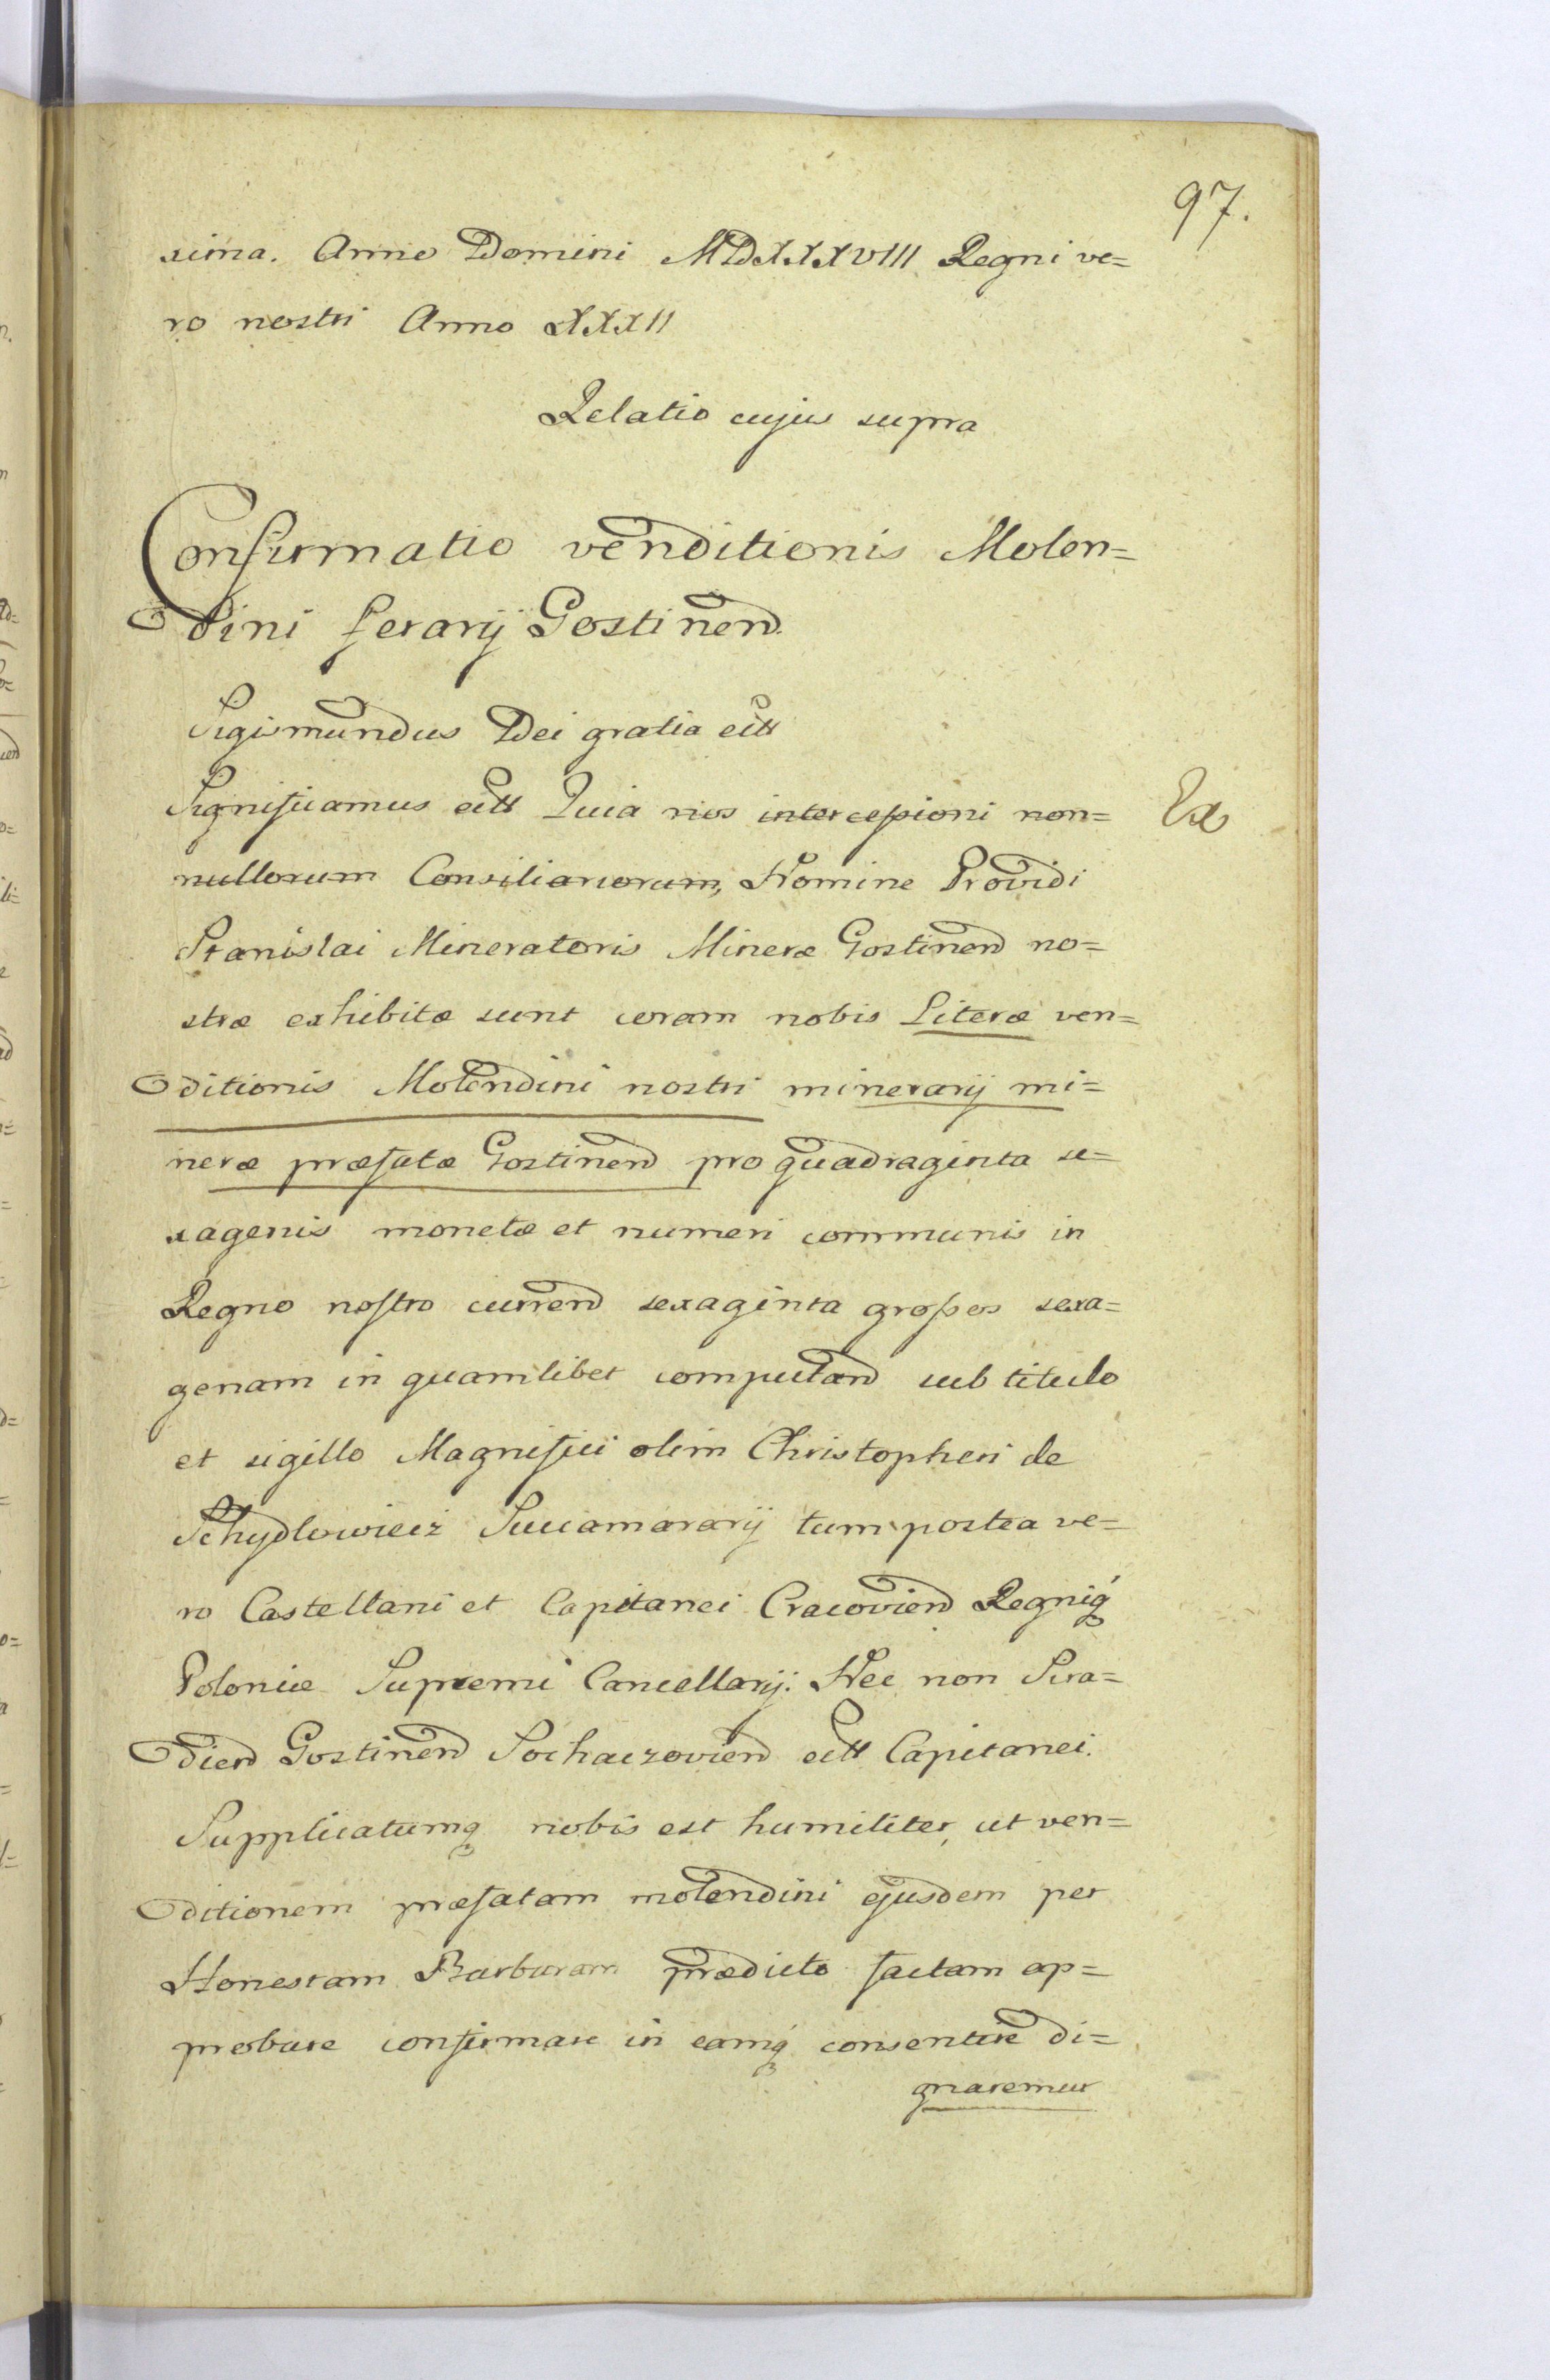 97.
sima. Anno Domini MDXXXVIII Regni ve=
ro nostri Anno XXXII
Relatio cujus supra
Confirmatio venditionis Molen=
dini ferarij Gostinen͠
Sigismundus Dei gratia ectt
Significamus ectt Quia nos intercessioni non=
nullorum Consiliariorum, Nomine Providi
Stanislai Mineratoris Mineræ Gostinen͠ no=
stræ exhibitæ sunt coram nobis Literæ ven=
ditionis Molendini nostri minerarij mi=
neræ præfatæ Gostinen͠ pro quadraginta se=
xagenis monetæ et numeri communis in
Regno nostro curren͠ sexaginta grossos sexa=
genam in quamlibet computan͠ sub titulo
et sigillo Magnifici olim Christopheri de
Schydlowiecz Succamerarij tum postea ve=
ro Castellani et Capitanei Cracovien͠ Regniq́
Poloniæ Supremi Cancellarij. Nec non Sira=
dien͠ Gostinen͠ Sochaczovien͠ ectt Capitanei.
Supplicatumq nobis est humiliter, ut ven=
ditionem præfatam molendini ejusdem per
Honestam Barbaram prædicto factam ap=
probare confirmare in eamq́ consentire di=
gnaremur